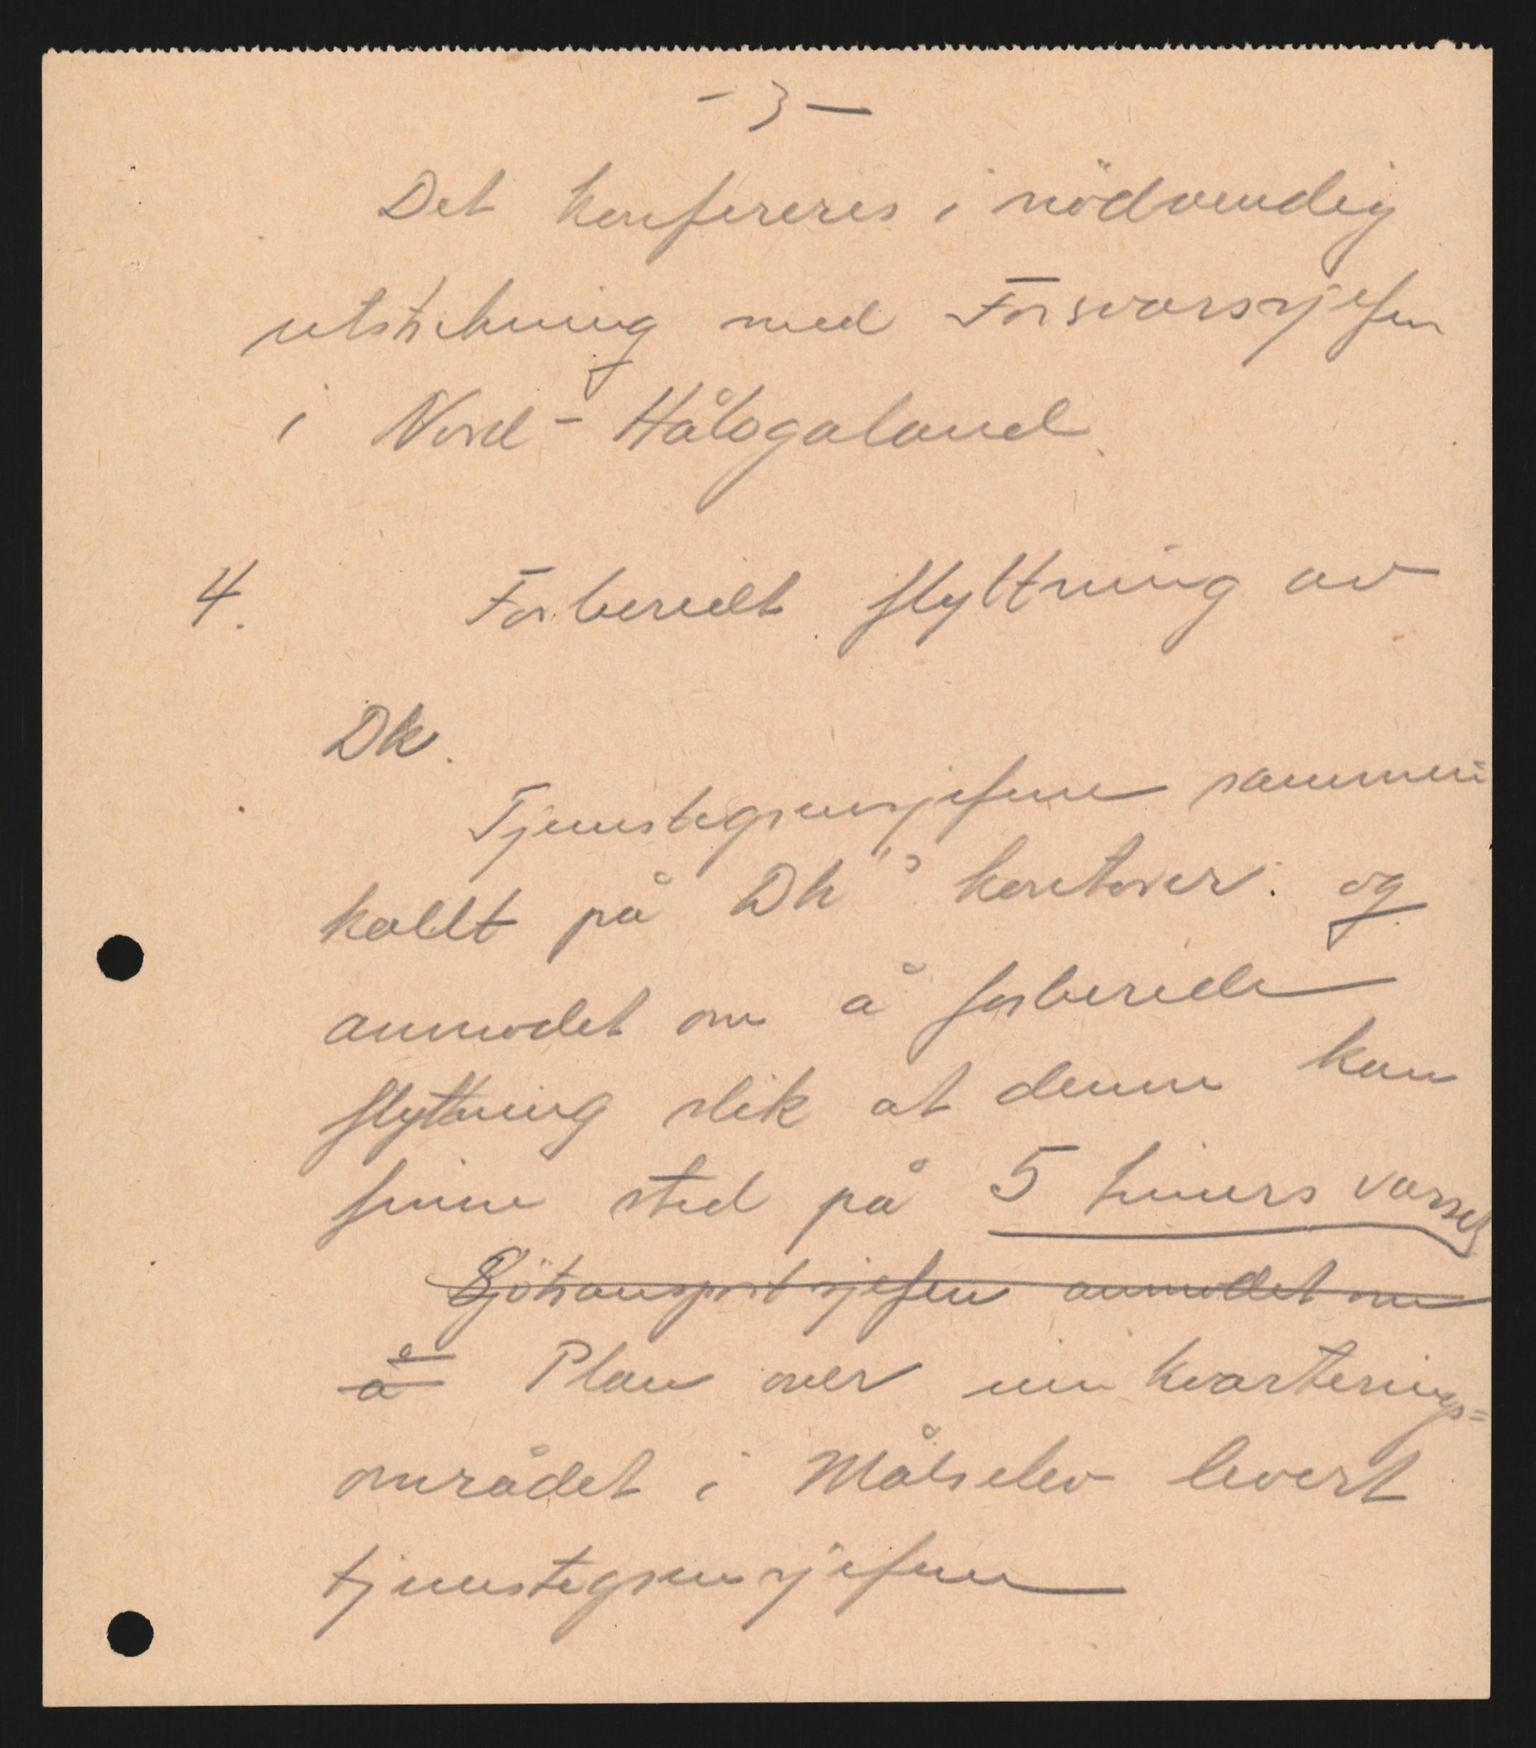 - 3 -
Det konfereres i nödvendig
utstrekning med Forsvarssjefen
i Nord-Hålogaland.
4. Forberedt flyttning av
Dk.
Tjenestegrensjefene sammen
kallt på Dk's kontorer. og
anmodet om å forberede
flyttning slik at denne kan
finne sted på 5 timers varsel
Sjötransportsjefen anmodet om
å Plan over innkvarterings=
området i Målselv levert
tjenestegrensjefene